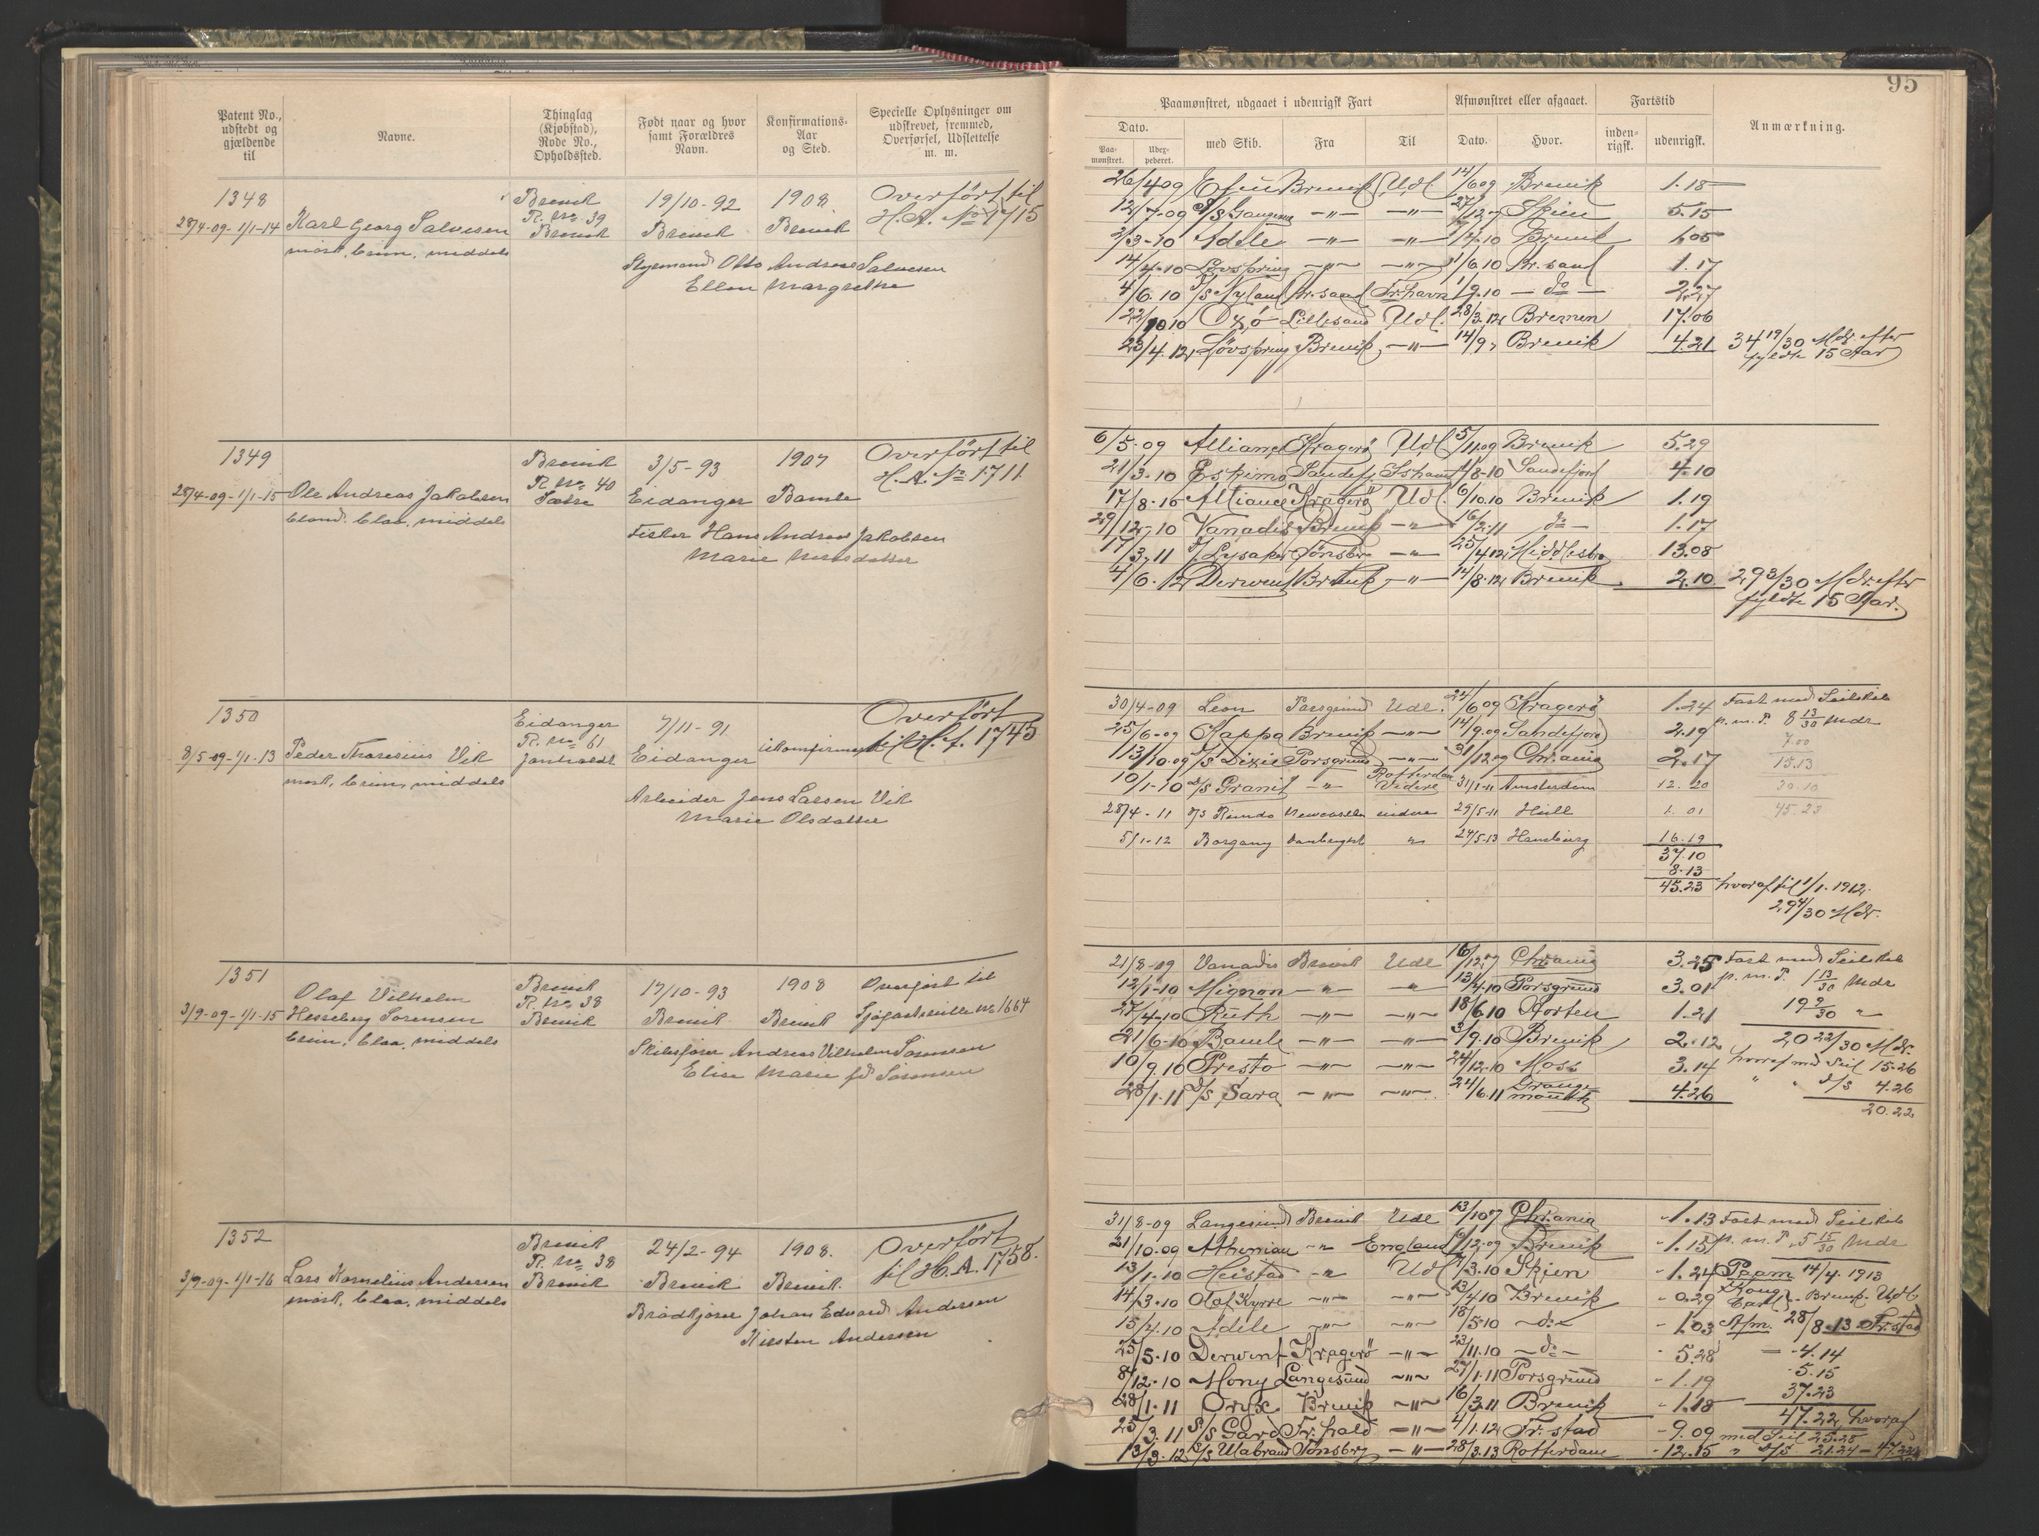 95
Patent No., udstedt og gjældende til
Navne.
Thinglag (Kjøbstad), Rode No., Opholdssted.
Født naar og hvor samt Forældres Navn.
Konfirmations- Aar og Sted.
Specielle Oplysninger om udskrevet, fremmed, Overførsel, Udslettelse m. m.
Paamønstret, udgaaet i udenrigsk Fart
Dato.
Paamønstret.
Udexpederet.
med Skib.
Fra
Til
Afmønstret eller afgaaet.
Dato.
Hvor.
Fartstid
indenrigsk.
udenrigsk.
Anmærkning.
1348
28/4-09-1/1-14
Karl Georg Salvesen
mørk, brun, middels
Brevik
R. No 39
Brevik
19/10-92
Brevik
1908
Brevik
Overført til
H.A. No 1715
Styrmand Otto Andreas Salvesen
Ellen Margrethe
26/4 09 Brevik Udl 14/6 09 Brevik 1.18
12/7-09 Skien 5.15
2/3-10 Adele 10 Brevik 1.05
14/4-10 Løvspring 1/6.10 Kr.sand 1.17
4/6.10 S/S Nyland Kr.sand Fr.havn 1/9.10 do 2.27
22/10 10 Oxø Lillesand Udl. 28/3.12 Bremen 17.06
23/4.12 Løvspring Brevik 14/9 Brevik 4.21 34 19/30 Mdr. efter
fyldte 15 Aar
1349
28/4-09-1/1-15
Ole Andreas Jakobsen
blond. blaa, middels
Brevik
R. No 40
3/5-93
Eidanger
1907
Bamle
Overført til
H.A. No 1711
Fisker Hans Andreas Jakobsen
Marie
6/5-09 Alliance Kragerø Udl 5/11 09 Brevik 5.29
21/3-10 Eskimo Sandefj Ishavet 8-10 Sandefjord 4.10
17/8-10 Alliance Kragerø Udl. 6/10.10 Brevik 1.19
29/12-10 Vanadis Brevik 16/2.11 do 1.17
17/3.11 S/S Lysaker Tønsbg 25/4 12 Middlesbro 13.08
4/6.12 Derwent Brevik 14/8.12 Brevik 2.10 29 3/30 Mdr. efter
fyldte 15 Aar.
1350
8/5-09-1/1-13
Peder Thoresius Vik
mørk, brun, middels
Eidanger
R. No 61
7/11-91.
Eidanger
ukonfirmert
Overført
til H.f. 1745
Arbeider Jens Larsen Vik
Marie Olsdatter
30/4-09 Leon Porsgrund Udl. 24/6 09 Kragerø 1.24 Fart med Seilskib
25/6-09 Kappa Brevik 14/9.09 Sandefjord 2.19 p.m.P. 8 13/30 Mdr
13/10 09 S/S Dixie Porsgrund 31/12 09 Chr.ania 2.17
10/1-10 D/S Granit Rotterdam Videre 31/1-11 Amsterdam 12.20
28/4-11 Newcastle videre 29/5-11 Hull 1.01
5/1-12 Borgany 27/5-13 Hamburg 16.19
37.10
8.13
45.23 hvoraf til 1/1.1912
29 4/30 Mdr.
7.00
15.13
30.10
45.23
1351
3/9-09-1/1-15
Olaf Vilhelm
Hesseberg Sørensen
brun, blaa, middels
Brevik
R. No 38
Brevik
17/10-93
Brevik
1908
Brevik
Overført til
Sjøfartsrulle No 1664
Skibsfører Andreas Vilhelm Sørensen
Elise Marie fd Sørensen
21/8-09 Vanadis Brevik Udl 16/12 Chr.ania 3.25 Fart med Seilskib
12/1-10 Mignon 13/4.10 Porsgrund 3.01 p.m.P. 1 13/30 Mdr
27/4-10 Ruth 18/6.10 Horten 1.21 19 9/30 "
21/6-10 Bamle 3/9.10 Brevik 2.12 20 22/30 Mdr.
10/9.10 Presto 24/12.10 Moss 3.14 hvoraf med Seil 15.26
28/1.11 D/S Sara 24/6.11 Grangemouth 4.26 " " d/s 4.26
20.22
1352
3/9-09-1/1-16
Lars Kornelius Andersen
mørk, blaa, middels
Brevik
R. No 38
Brevik
24/2-94
Brevik
1908.
Brevik.
Overført
til H.A. 1758.
Brødkjører Johan Edvard Andersen
Kirsten Andersen
31/8-09 Langesund Brevik Udl 13/10 Chr.ania 1.13 Fart med Seilskib
21/10.09 Athenian England 12-09 Brevik 1.15 p.m.P. 5 15/30 Mdr
13/1-10 Heistad Udl 3.10 Skien 1.24 Paam 14/4.1913
14/3-10 Olaf Kyrre 13/4.10 Brevik 0.29 Kong Carl Brevik Udl
15/4.10 Adele 18/5-10 do 1.03 Afm. 28/8.13 Fr.stad
25/5-10 Derwent Kragerø 23/11.10 do 5.28 4.14
8/12-10 Mony Langesund 27/1.11 Porsgrund 1.19 5.15
28/1.11 Oryx Brevik 16/3.11 Brevik 1.18 37.23
25/3.11 S/S Gard Fr.hald 4/1.12 Fr.stad 9.09 47.22 hvoraf
13/3.12 Tønsbrg 28/3.13 Rotterdam 12.15 med Seil 25.28
" d/s 21.24 - 47.22